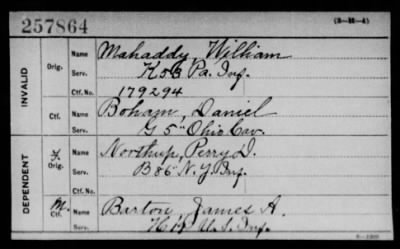 257864
(3—M—4)
INVALID
Orig.
Name Mahaddy, William
Serv. K 53 Pa. Inf.
Ctf. No. 179294
Ctf.
Name Boham, Daniel
Serv. G 5" Ohio Cav.
DEPENDENT
Orig.
Name Northup, Perry D.
Serv. B 86" N.Y. Inf.
Ctf. No.
M.
Ctf.
Name Barton, James A.
Serv. U.S. Inf.